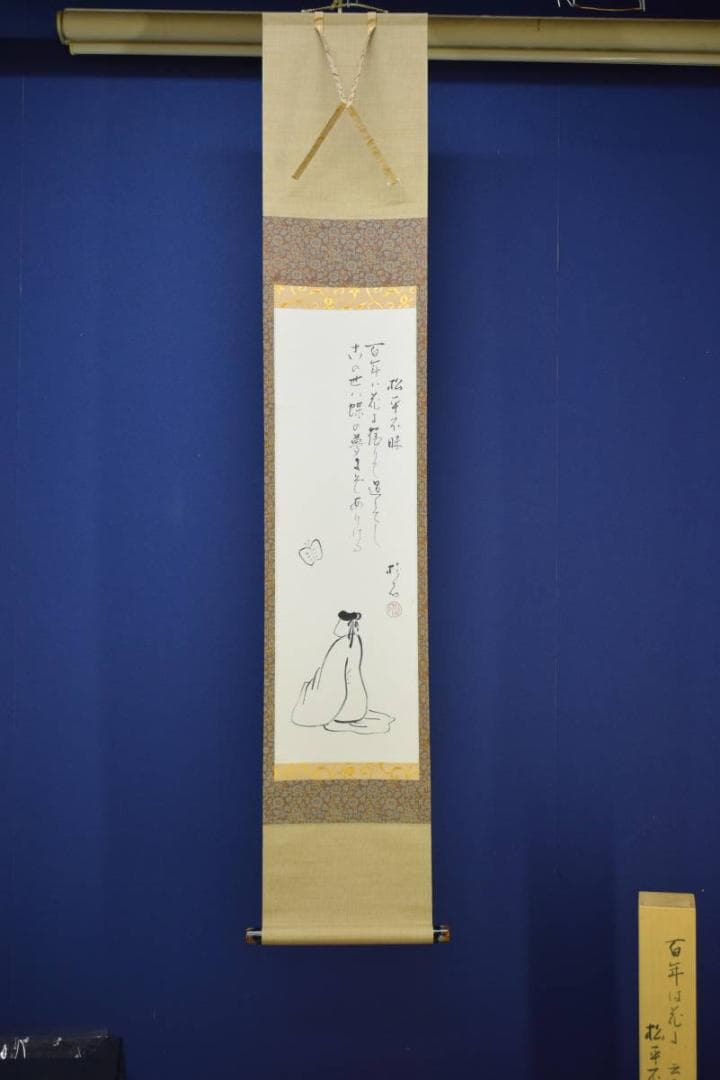 松平不昧
百年ハ花に宿りて過してし
この世ハ蝶の夢にそありける
百年は花に
松平不